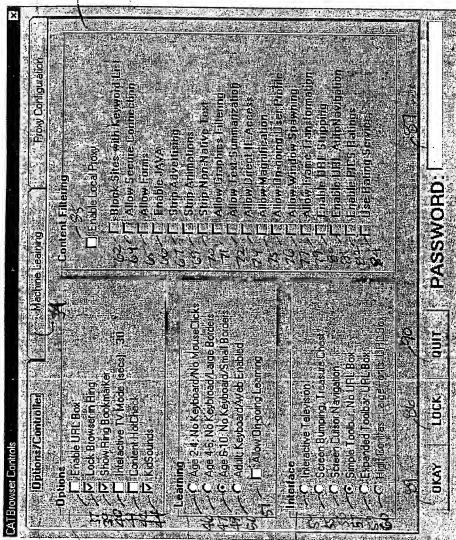 CATBrowser Controls
Options/Controller
Machine Learning
Proxy Configuration
Options
Enable URL Box
Lock Browser in Ring
Show Ring Bookmarker
Interactive TV Mode (secs) 30
Content HotCheck
KidSounds
Learning
Age 2-4: No Keyboard/No MouseClicks
Age 4-6: No Keyboard/Large Borders
Age 6-10: No Keyboard/Small Borders
Adult: Keyboard/Web Enabled
Allow Ongoing Learning
Interface
Interactive Television
Screen Bumping, Treasure Chest
Screen Button Navigation
Simple Toolbar, No URL Box
Expanded Toolbar, URL Box
Content Filtering
Enable Local Proxy
Block Sites with Keyword List
Allow Secure Connection
Allow Forms
Enable JAVA
Strip Advertising
Strip Animations
Strip Non-Native Text
Allow Graphics Filtering
Allow Text Summarization
Allow Direct IP Access
Allow Magnification
Allow Ongoing User Profile
Allow Window Spawning
Allow Frame Transformation
Enable URL Skipping
Enable URL AutoNavigation
Enable PICS Ratings
Use Rating Service
OKAY
LOCK
QUIT
PASSWORD: